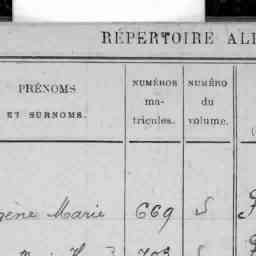 RÉPERTOIRE AL
PRÉNOMS
ET SURNOMS.
NUMÉROS
ma-
tricules.
NUMÉRO
du
volume.
gène Marie 669 5